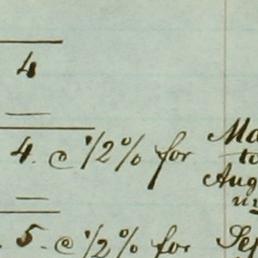 4
4. @ 1/2% for Ma
to
Aug
5. @ 1/2% for Sep